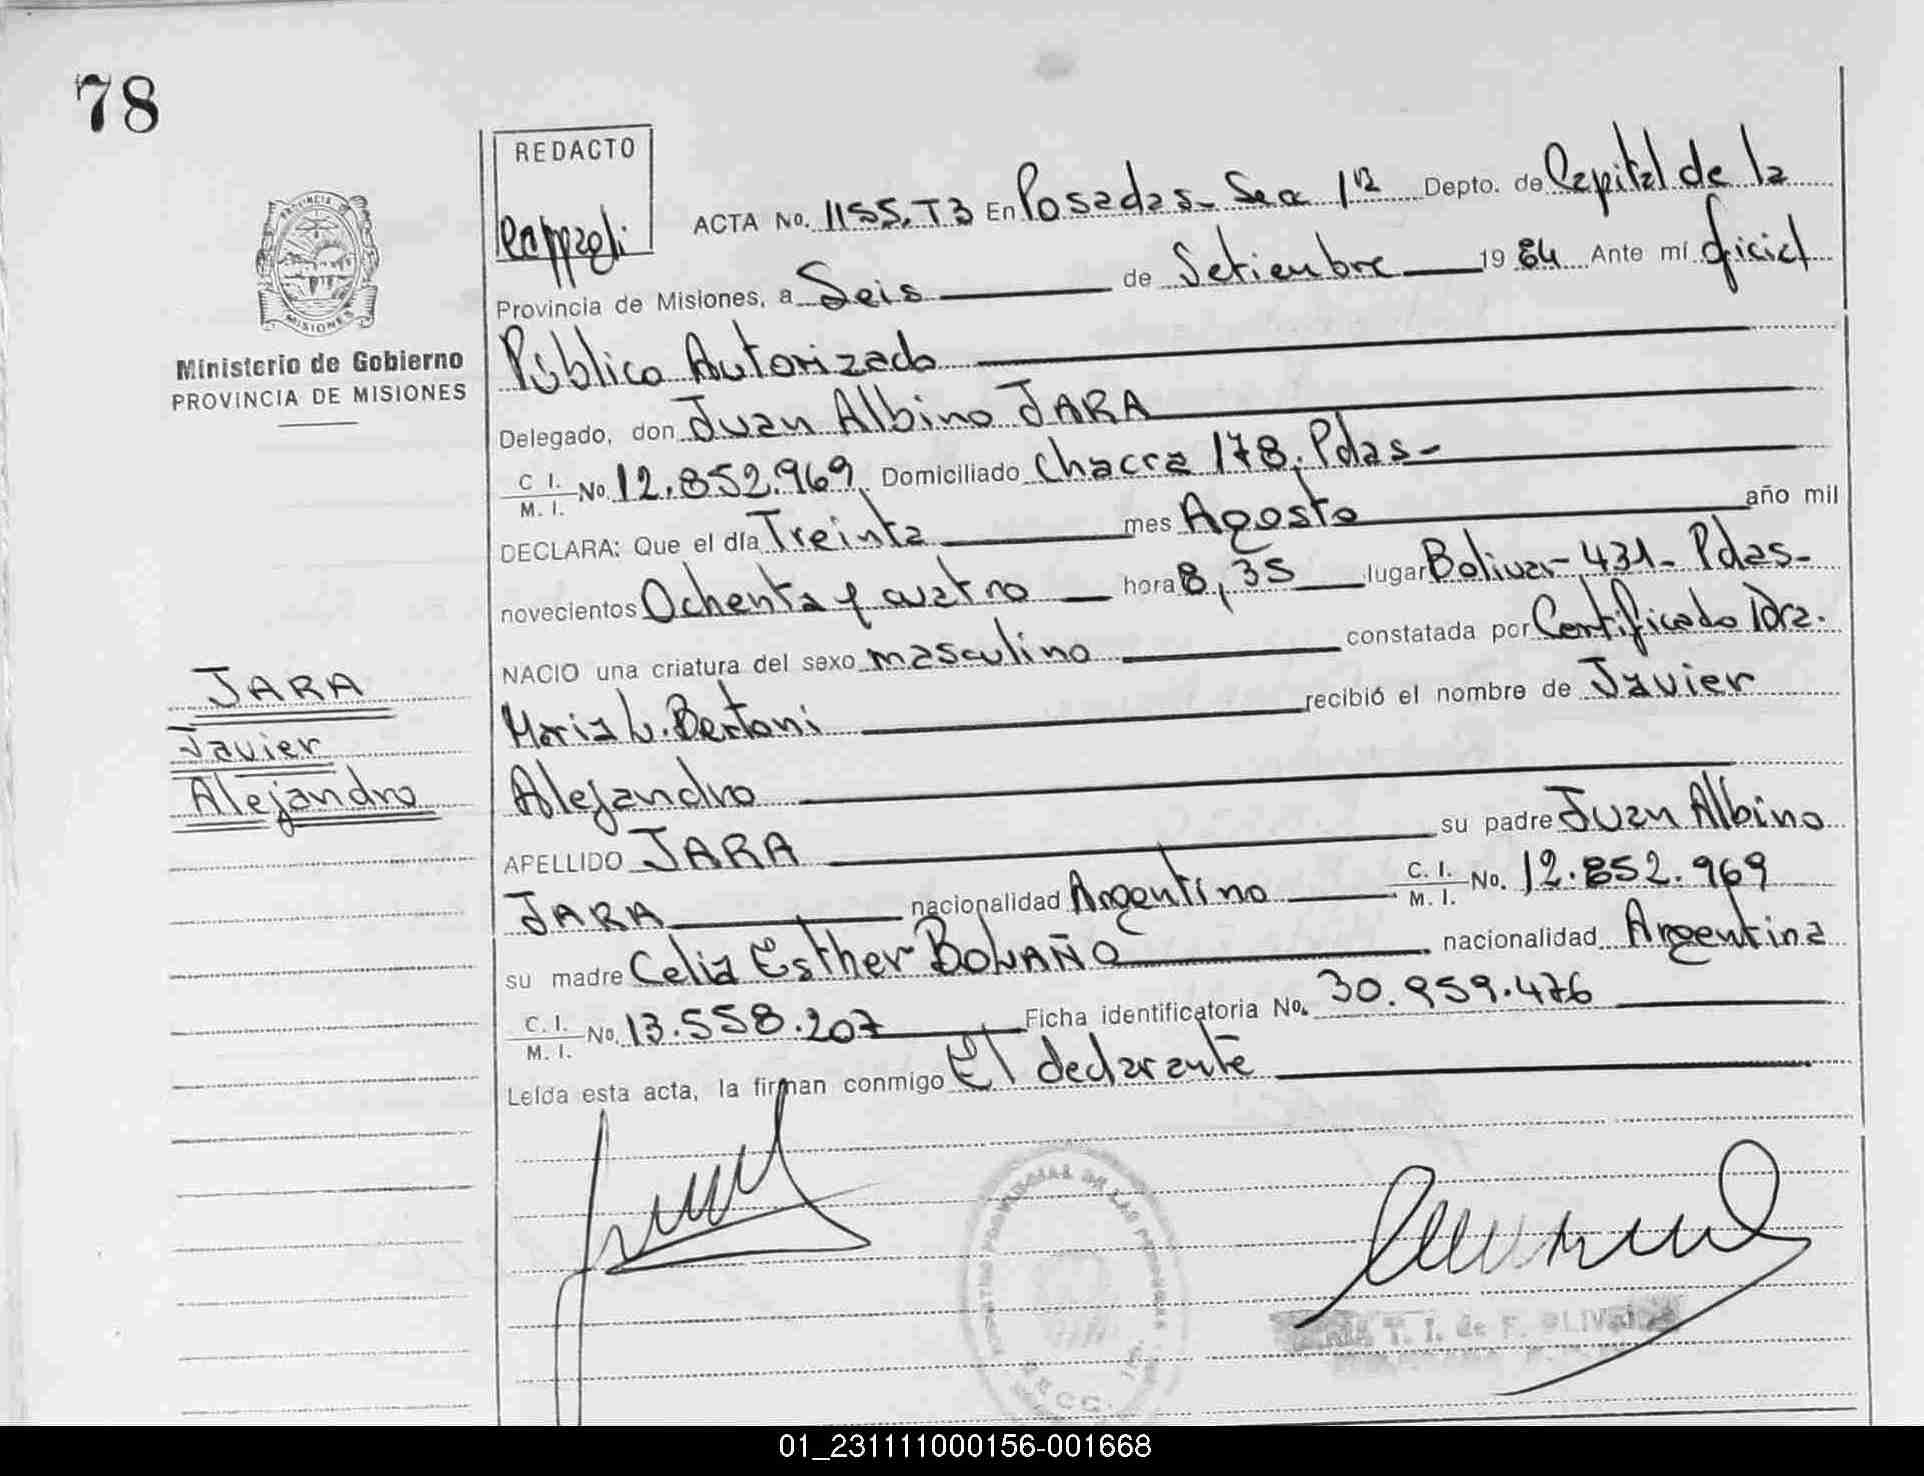 78
REDACTO
PROVINCIA DE
MISIONES
Ministerio de Gobierno
PROVINCIA DE MISIONES
ACTA No. 1155. T3 En Posadas - Sec 1ra Depto. de Capital de la
Provincia de Misiones, a Seis de Setiembre 1984 Ante mí Oficial
Público Autorizado
Delegado, don Juan Albino JARA
C. I. / M. I. No. 12.852.969 Domiciliado Chacra 178. Pdas-
DECLARA: Que el día Treinta mes Agosto año mil
novecientos Ochenta y cuatro hora 8,35 lugar Bolivar-431- Pdas-
NACIO una criatura del sexo masculino constatada por Certificado Dra.
Maria L. Bertoni recibió el nombre de Javier
Alejandro
APELLIDO JARA su padre Juan Albino
JARA nacionalidad Argentino C. I. / M. I. No. 12.852.969
su madre Celia Esther BOLAÑO nacionalidad Argentina
C. I. / M. I. No. 13.558.207 Ficha identificatoria No. 30.959.476
Leída esta acta, la firman conmigo El declarante
JARA
Javier
Alejandro
REGISTRO PROVINCIAL DE LAS PERSONAS
T. I. de F. OLIVEIRA
01_231111000156-001668